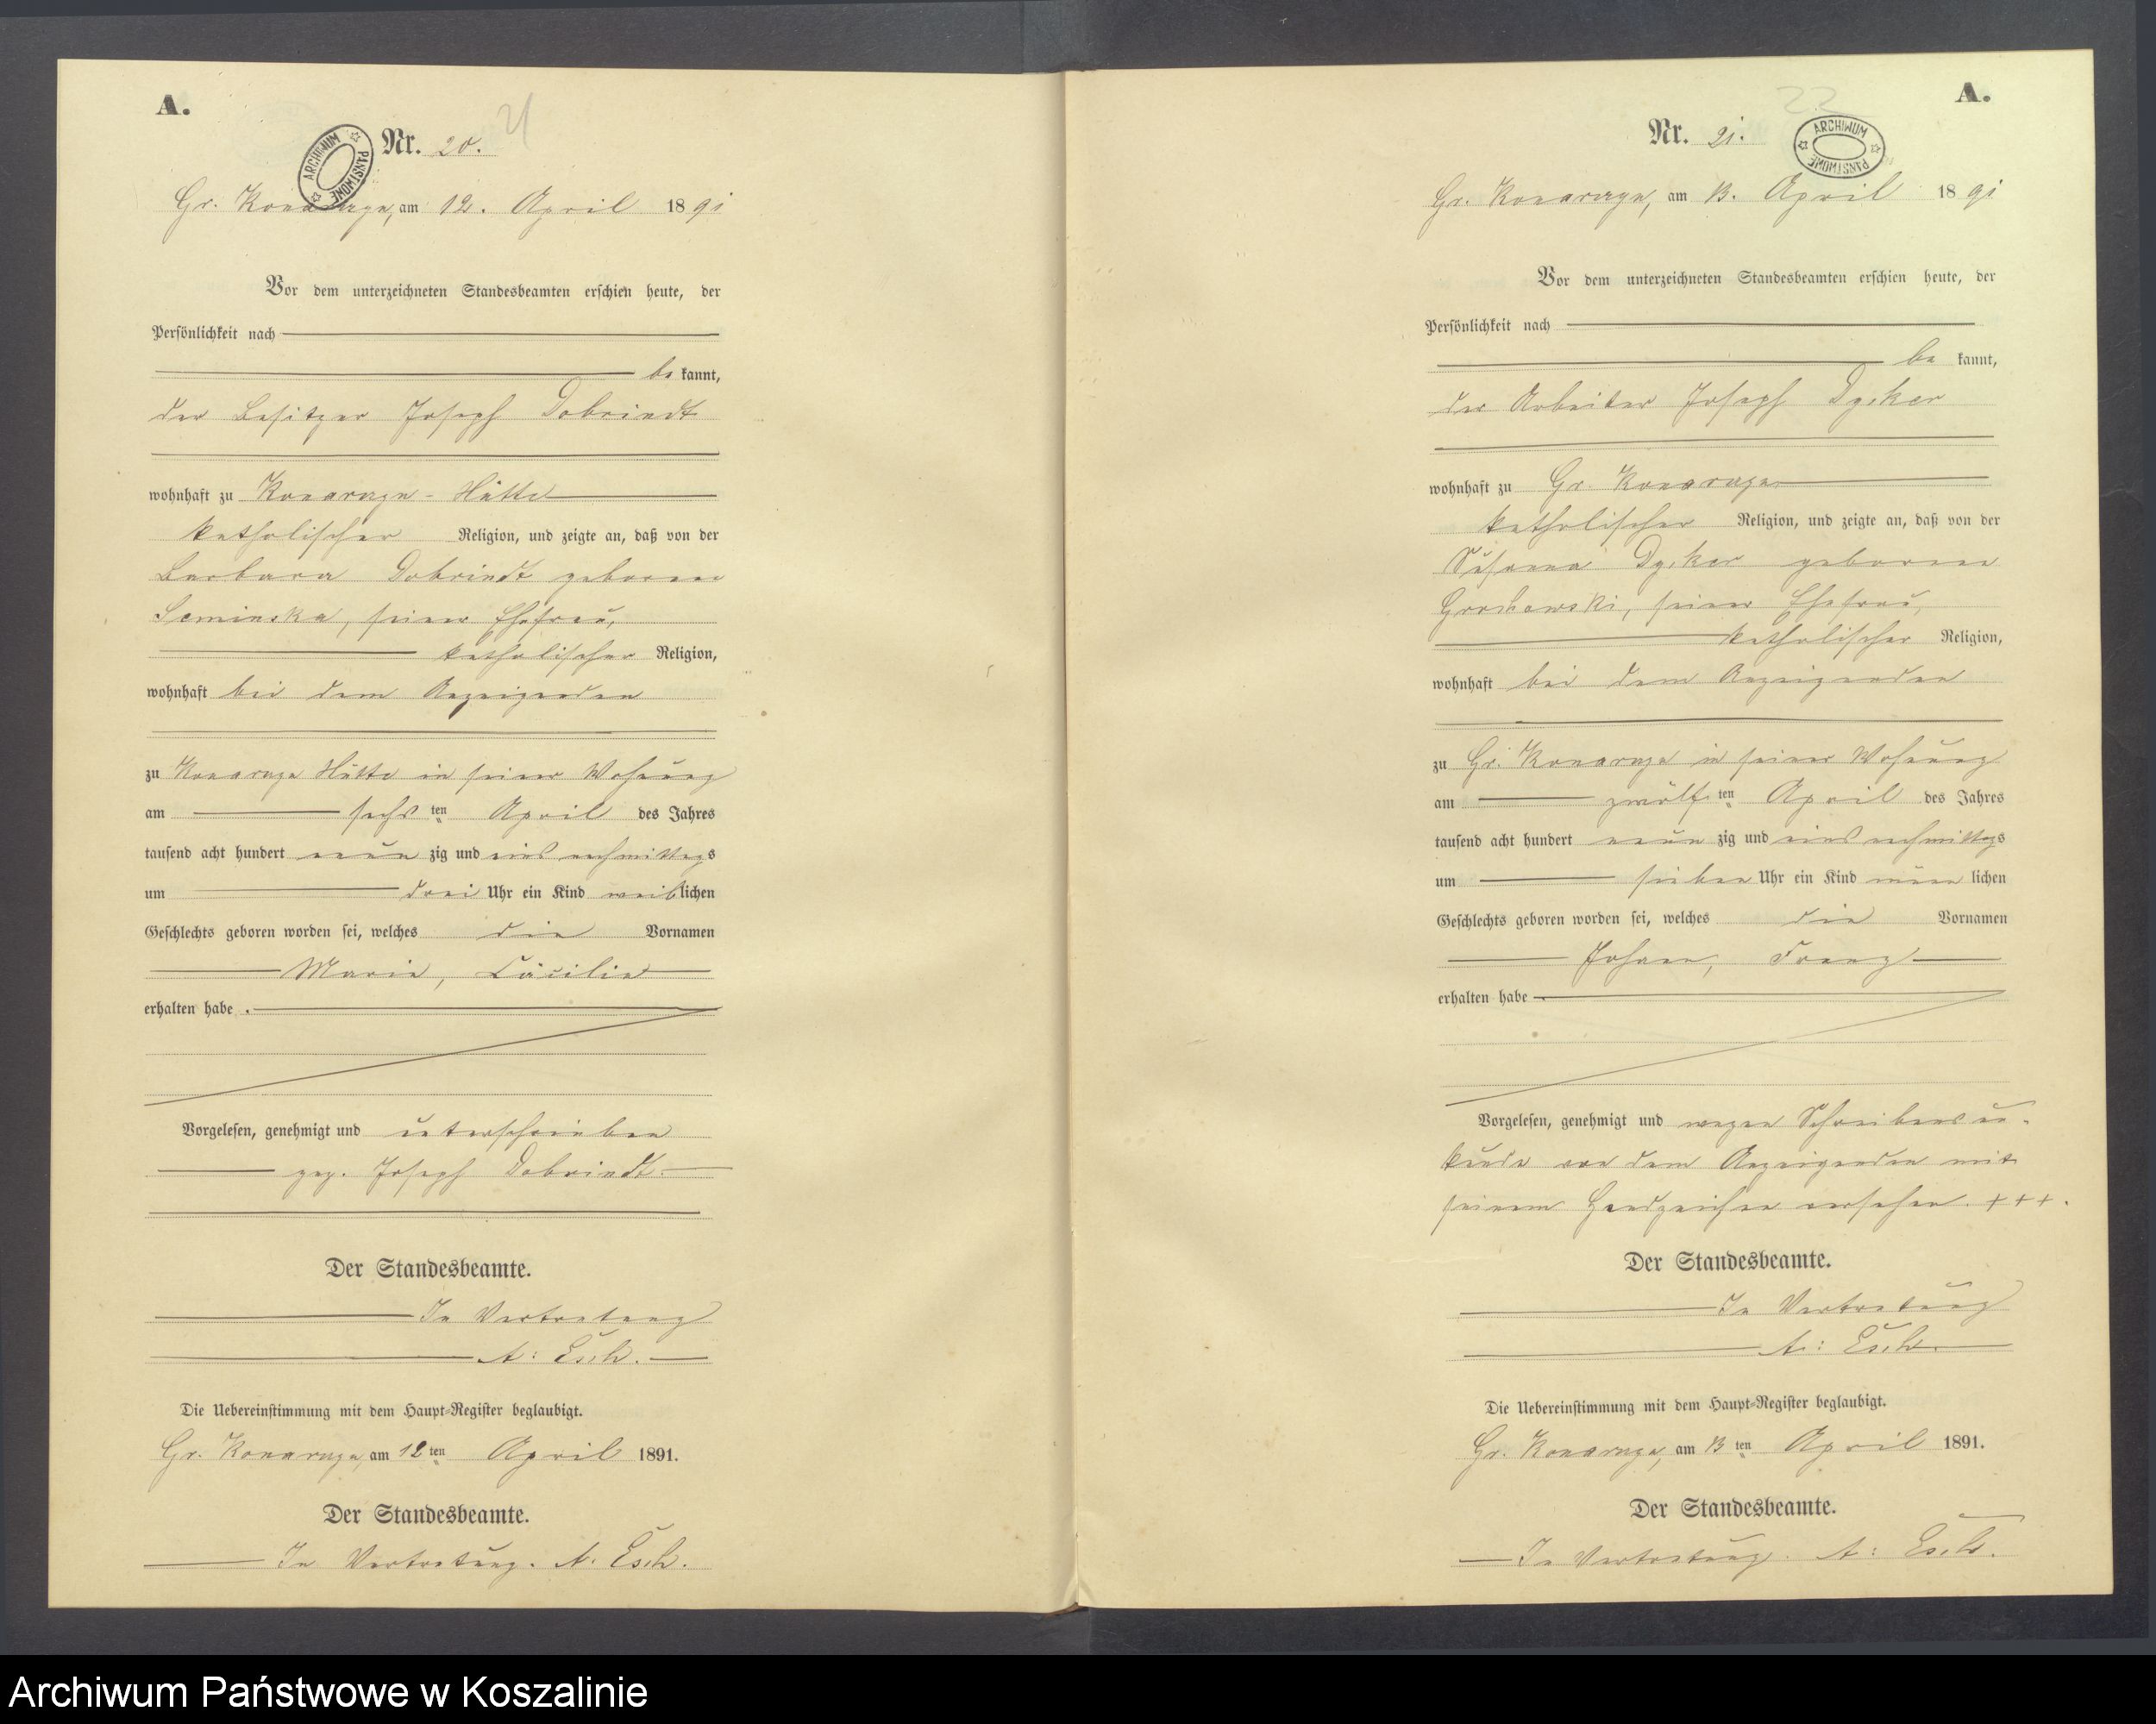 A.
Nr. 20.
21
ARCHIWUM PAŃSTWOWE
Gr. Konarczyn, am 12. April 1891
Vor dem unterzeichneten Standesbeamten erschien heute, der
Persönlichkeit nach
bekannt,
der Besitzer Joseph Dobrindt
wohnhaft zu Konarczyn - Hütte
katholischer Religion, und zeigte an, daß von der
Barbara Dobrindt geborene
seiner Ehefrau,
katholischer Religion,
wohnhaft bei dem Anzeigenden
zu Konarczyn Hütte in seiner Wohnung
am sechsten April des Jahres
tausend acht hundert neunzig und eins nachmittags
um drei Uhr ein Kind weiblichen
Geschlechts geboren worden sei, welches die Vornamen
Marie, Cäcilie
erhalten habe.
Vorgelesen, genehmigt und unterschrieben
gez. Joseph Dobrindt.
Der Standesbeamte.
In Vertretung
A: Esch.
Die Uebereinstimmung mit dem Haupt-Register beglaubigt.
Gr. Konarczyn, am 12ten April 1891.
Der Standesbeamte.
In Vertretung. A. Esch.
A.
22
Nr. 21.
ARCHIWUM PAŃSTWOWE
Gr. Konarczyn, am 13. April 1891
Vor dem unterzeichneten Standesbeamten erschien heute, der
Persönlichkeit nach
bekannt,
der Arbeiter Joseph Dycker
wohnhaft zu Gr. Konarczyn
katholischer Religion, und zeigte an, daß von der
Susanna Dycker geborene
seiner Ehefrau,
katholischer Religion,
wohnhaft bei dem Anzeigenden
zu Gr. Konarczyn in seiner Wohnung
am zwölften April des Jahres
tausend acht hundert neunzig und eins nachmittags
um sieben Uhr ein Kind männlichen
Geschlechts geboren worden sei, welches die Vornamen
Johann, Franz
erhalten habe
Vorgelesen, genehmigt und wegen Schreibensun-
kunde von dem Anzeigenden mit
seinem Handzeichen versehen. +++.
Der Standesbeamte.
In Vertretung
A: Esch.
Die Uebereinstimmung mit dem Haupt-Register beglaubigt.
Gr. Konarczyn, am 13ten April 1891.
Der Standesbeamte.
In Vertretung. A: Esch.
Archiwum Państwowe w Koszalinie